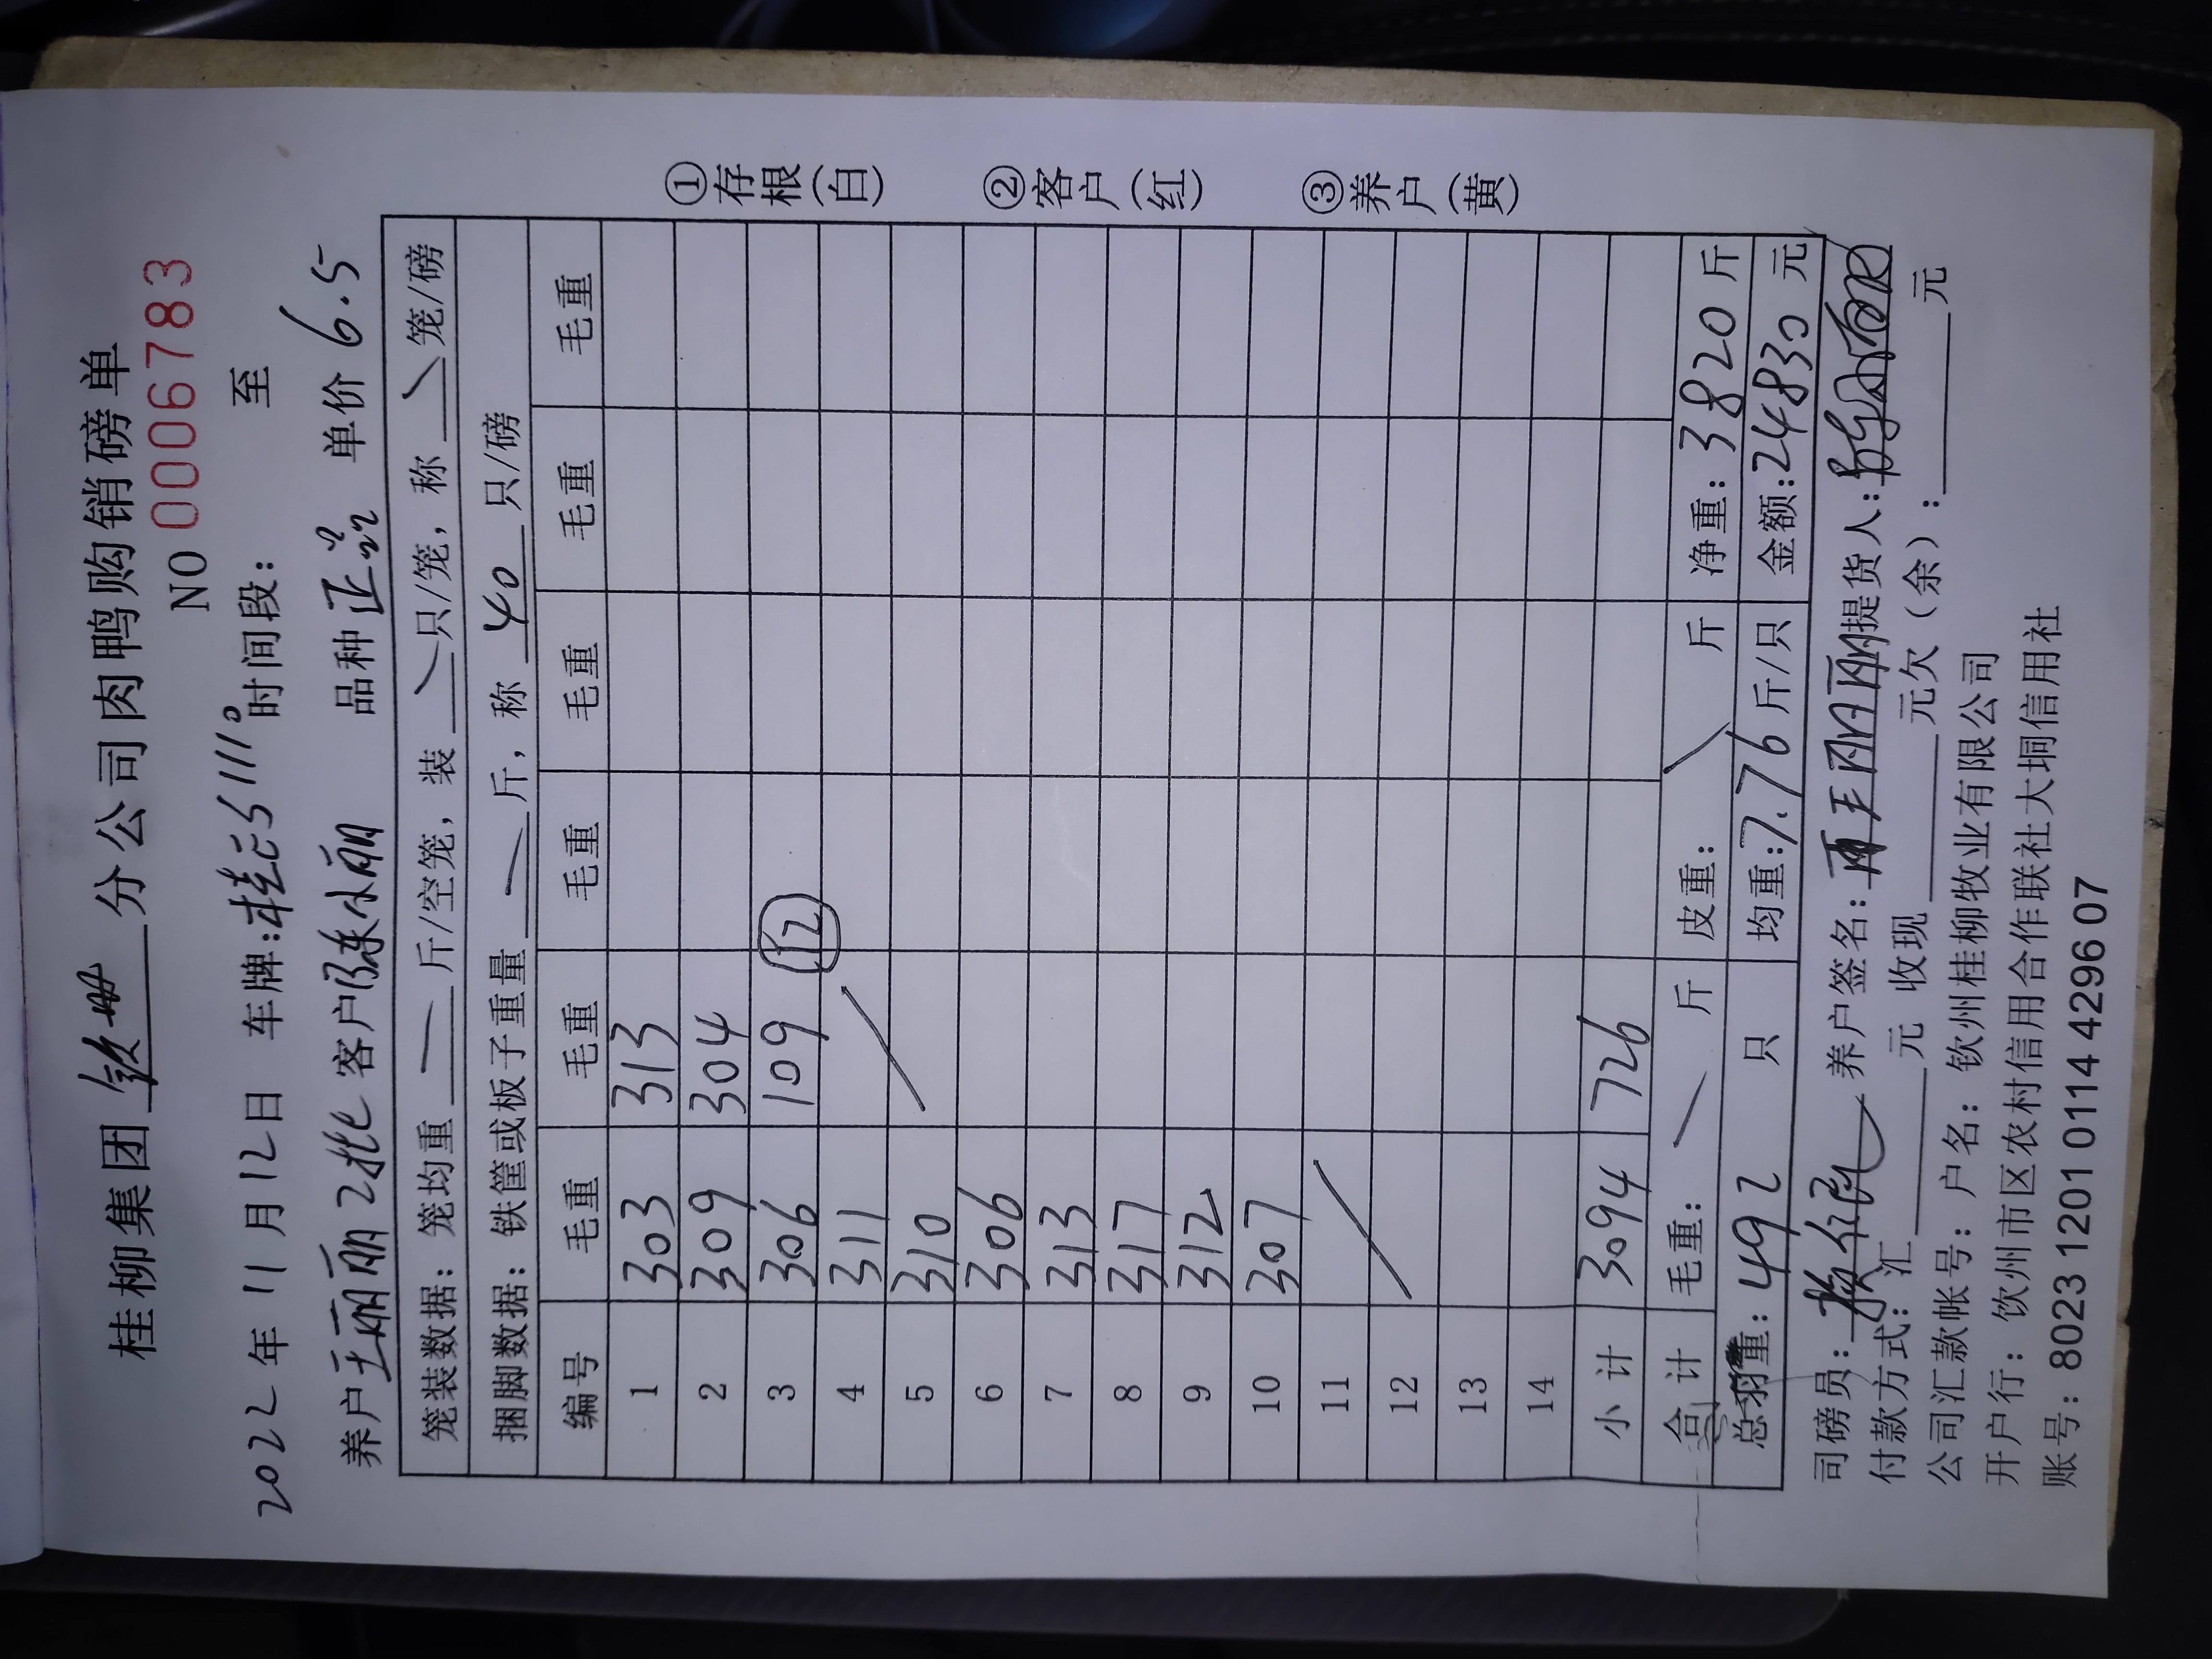 桂柳集团 钦州 分公司肉鸭购销磅单
NO 0006783
2022年11月12日 车牌:桂E51110 时间段: 至
养户 王丽丽2批 客户 陈小丽 品种 正 单价 6.5
笼装数据: 笼均重 斤/空笼, 装 只/笼, 称 笼/磅
捆脚数据: 铁筐或板子重量 斤, 称 40 只/磅
编号 毛重 毛重 毛重 毛重 毛重 毛重
1 303 313
2 309 304
3 306 109 12
4 311
5 310
6 306
7 313
8 317
9 312
10 307
11
12
13
14
小计 3094 726
合计 毛重: 斤 皮重: 斤 净重: 3820 斤
总羽: 492 只 均重: 7.76 斤/只 金额: 24830 元
司磅员: 养户签名: 王丽丽 提货人:
付款方式: 汇 元 收现 元欠(余): 元
公司汇款帐号: 户名: 钦州桂柳牧业有限公司
开户行: 钦州市区农村信用合作联社大垌信用社
账号: 8023 1201 0114 4296 07
①存根(白)
②客户(红)
③养户(黄)